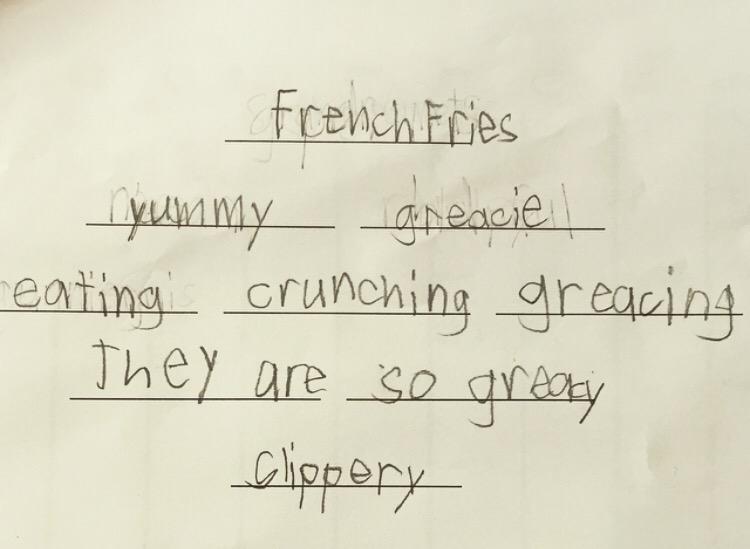 French Fries
yummy greacie
eating crunching greacing
They are so greacy
Clippery